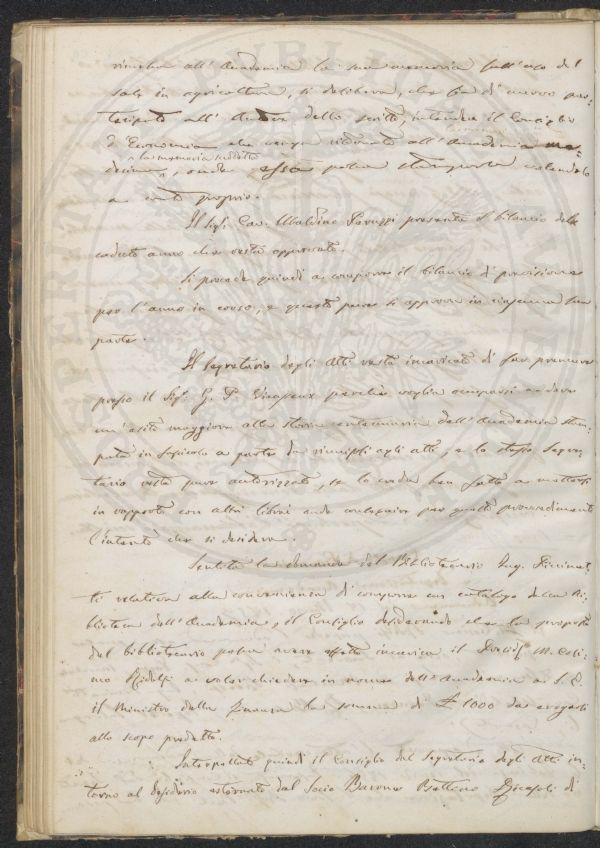 all' Accademia la sua memoria sull'uso del
sale in agricoltura, si delibera, che sia di nuovo par-
tecipato all' Autore dello scritto, intendere il Consiglio
d'Economia che venga ritornata all'Accademia me-
desima, la memoria suddetta, onde essa possa stamparla
a conto proprio.
Il Sig. Cav. Ubaldino Peruzzi presenta il bilancio dello
caduto anno che resta approvato.
Si procede quindi a comporre il bilancio di previsione
per l'anno in corso, e questo pure si approva in ciascuna sua
parte.
Il Segretario degli Atti resta incaricato di far premure
presso il Sig. G. P. Vieusseux perché voglia occuparsi a dare
un'esito maggiore alla storia centenaria dell'Accademia stam-
pata in fascicolo a parte dei riuniti agli atti, e lo stesso Segre-
tario resta pure autorizzato, se lo creda ben fatto a mettersi
in rapporto con altri librai onde conseguire per questo provvedimento
l'intento che si desidera.
Sentita la domanda del Bibliotecario Ing.
relativa alla convenienza di comporre un catalogo della Bi-
blioteca dell'Accademia, il Consiglio desiderando che la proposta
del bibliotecario possa avere effetto incarica il Presid. M. Cosi-
mo Ridolfi a voler chiedere in nome dell'Accademia a S. E.
il Ministro delle Finanze la somma di £ 1000 da erogarsi
allo scopo predetto.
Interpellato quindi il Consiglio dal Segretario degli Atti in-
torno al desiderio esternato dal Socio Barone Bettino Ricasoli di